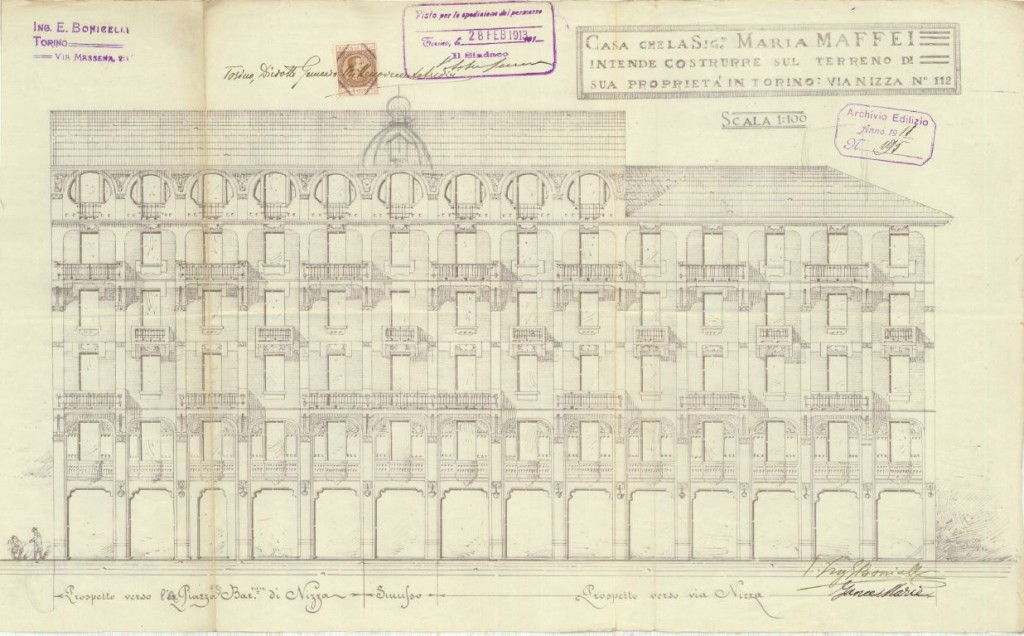 ING. E. BONICELLI
TORINO
VIA MASSENA,
Visto per la spedizione del permesso
Torino, li 28 FEB 1913 191
Il Sindaco
Torino,
CASA CHE LA SIG.RA MARIA MAFFEI
INTENDE COSTRURRE SUL TERRENO DI
SUA PROPRIETÁ IN TORINO: VIA NIZZA No 112
SCALA 1:100
Archivio Edilizio
Anno 191
N.
Prospetto verso Piazza Bar. di Nizza
Smusso
Prospetto verso via Nizza